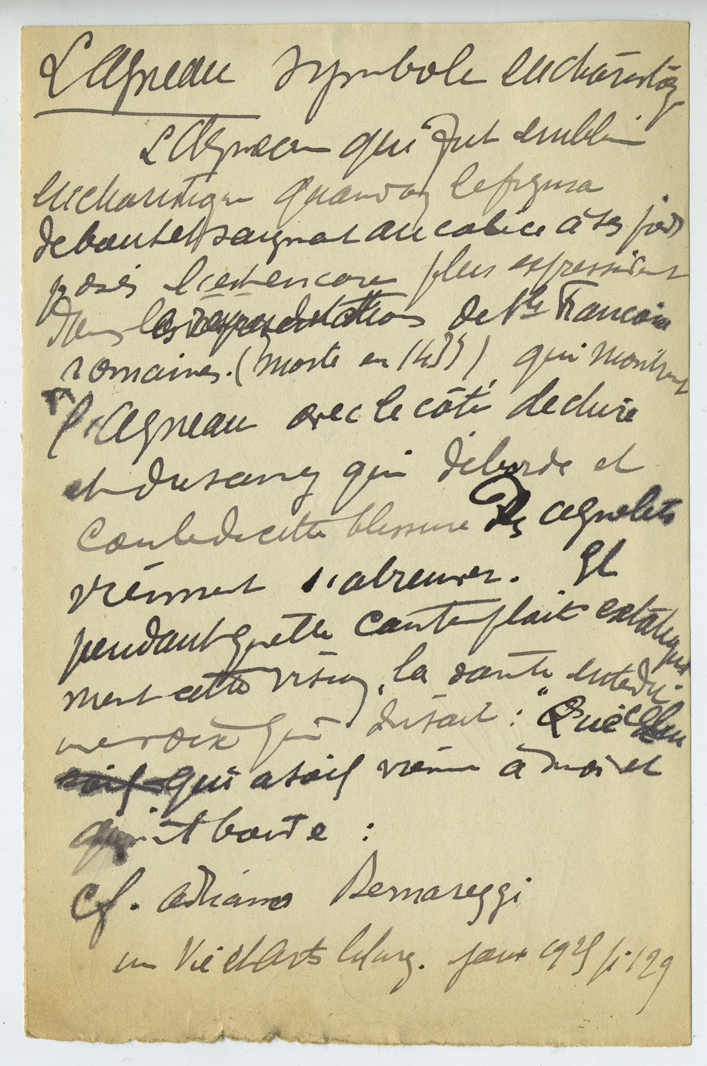 L'Agneau symbole eucharistiq
L'Agneau qui fut emblème
eucharistique quand on le figura
debout et saignant au calice à ses pieds
posés l'est encore plus expressivement
dans les représentations de Ste Françoise
romaines. (morte en 1433) qui montrent
l'Agneau avec le côté déchiré
et du sang qui déborde et
coule de cette blessure Des agnelets
viennent s'abreuver. Et
pendant qu'elle contemplait extatique
ment cette vision, la sainte entendit
une voix qui disait : "Que celui
qui a soif vienne à moi et
qu'il boive :
cf. Adriano Bernareggi
in Vie et Arts Liturg. janv 1925 p. 129